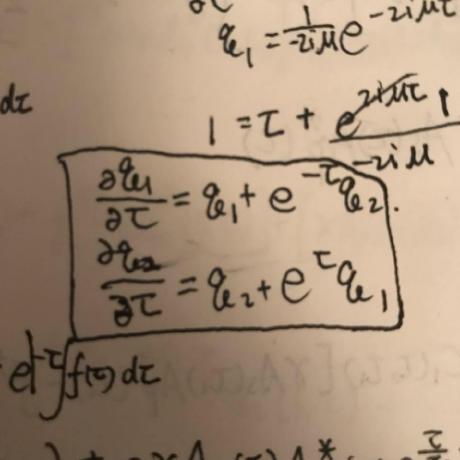 q_1 = \frac{1}{-2iμ} e^{-2iμτ}
dτ
1 = τ + \frac{e^{2iμτ}}{-2iμ}
\frac{∂q_1}{∂τ} = q_1 + e^{-τ} q_2.
\frac{∂q_2}{∂τ} = q_2 + e^{τ} q_1
f(τ) dτ